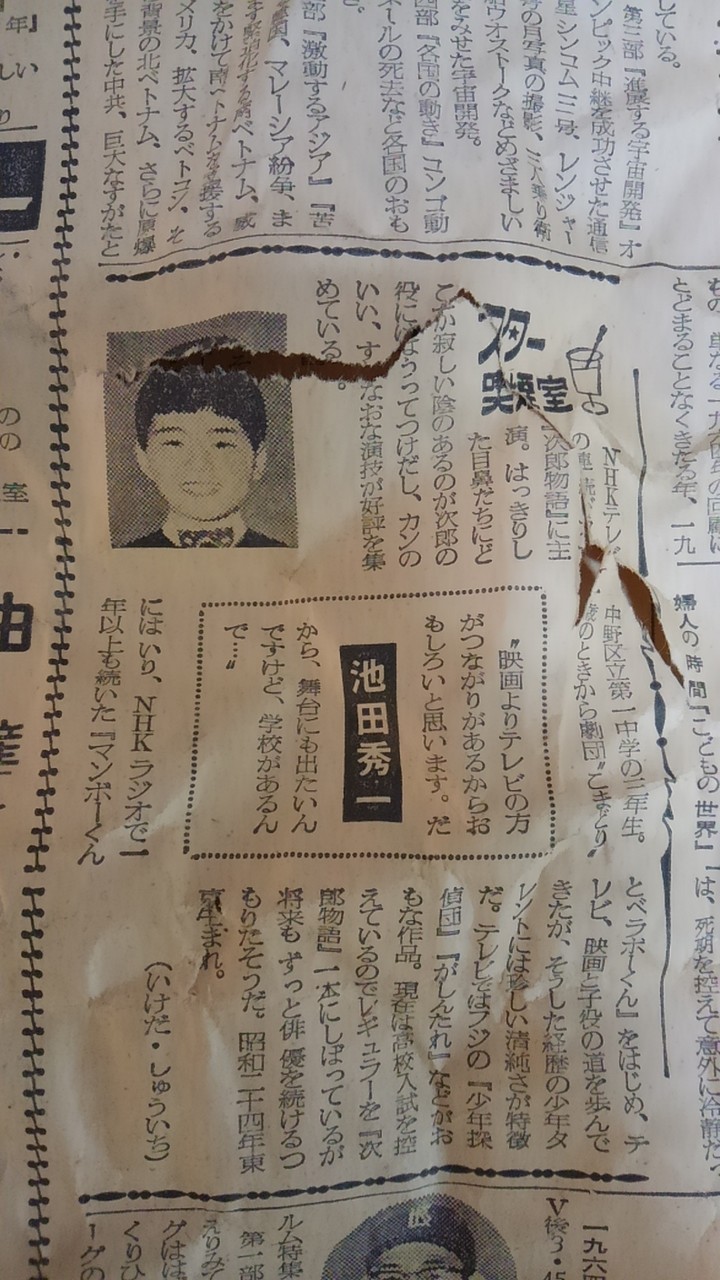 している。
第三部『進展する宇宙開発』オ
ンピック中継を成功させた通信
星シンコム三号、レンジャー
号の月写真の撮影、三人乗り衛
船ウオストークなどめざましい
をみせた宇宙開発。
四部『各国の動き』コンゴ動
ネールの死去など各国のおも
部『激動するアジア』『苦
マレーシア紛争、ま
ベトナム、威
をかけて南ベトナムを支援する
メリカ、拡大するベトコン、そ
背景の北ベトナム、さらに原爆
手にした中共、巨大なすがたと
スター
喫茶室
NHKテレ
の
『次郎物語』に主
演。はっきりし
た目鼻だちにど
こか寂しい陰のあるのが次郎の
役にはうってつけだし、カンの
いい、すなおな演技が好評を集
めている。
中野区立第一中学の三年生。
のときから劇団〝こまどり〟
〝映画よりテレビの方
がつながりがあるからお
もしろいと思います。だ
池田秀一
から、舞台にも出たいん
ですけど、学校があるん
で…〟
にはいり、NHKラジオで一
年以上も続いた『マンボーくん
とベラボーくん』をはじめ、テ
レビ、映画と子役の道を歩んで
きたが、そうした経歴の少年タ
レントには珍しい清純さが特徴
だ。テレビではフジの『少年探
偵団』『がしんたれ』などがお
もな作品。現在は高校入試を控
えているのでレギュラーを『次
郎物語』一本にしぼっているが
将来もずっと俳優を続けるつ
もりだそうだ。昭和二十四年東
京生まれ。
(いけだ・しゅういち)
とどまることなくきたる年、一九
婦人の時間『こどもの世界』
は、死期を控えて意外に冷静だっ
ルム特集
第一部
えりみて
くりひ
V後3・45
一九六四